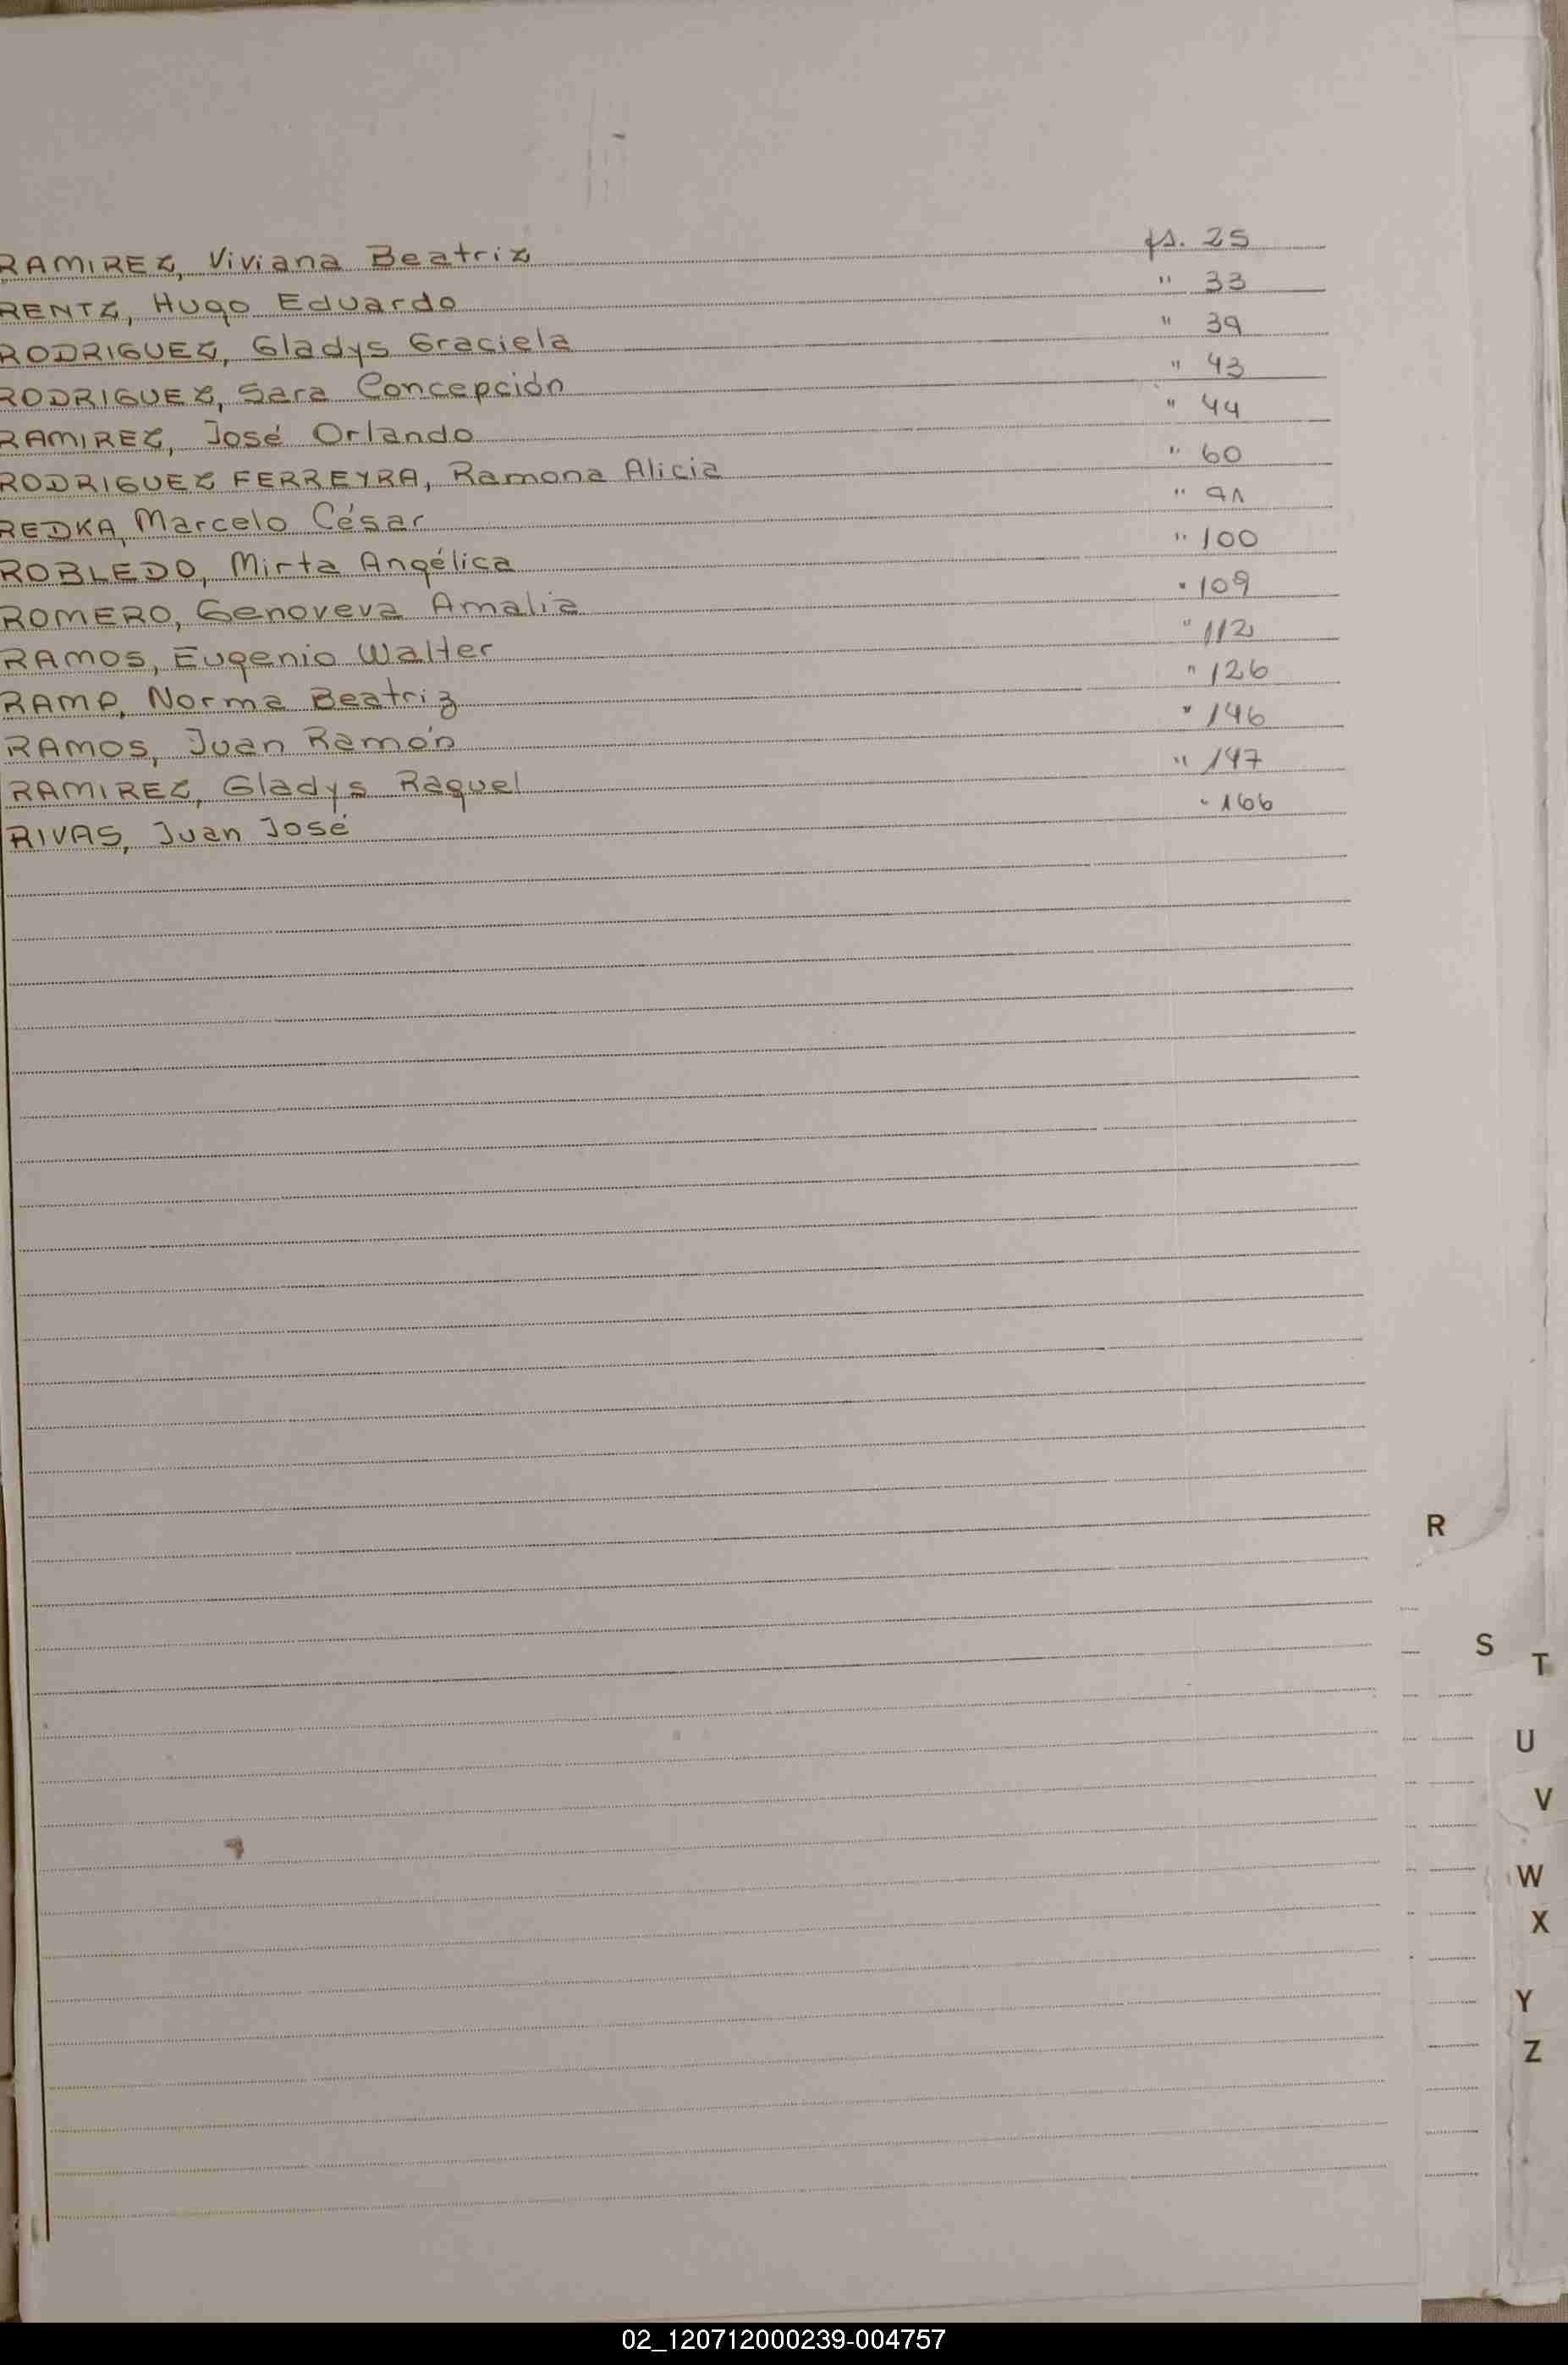 RAMIREZ, Viviana Beatriz fs. 25
RENTZ, Hugo Eduardo " 33
RODRIGUEZ, Gladys Graciela " 39
RODRIGUEZ, Sara Concepción " 43
RAMIREZ, José Orlando " 44
RODRIGUEZ FERREYRA, Ramona Alicia " 60
REDKA, Marcelo César " 91
ROBLEDO, Mirta Angélica " 100
ROMERO, Genoveva Amalia " 109
RAMOS, Eugenio Walter " 112
RAMP, Norma Beatriz " 126
RAMOS, Juan Ramón " 146
RAMIREZ, Gladys Raquel " 147
RIVAS, Juan José " 166
R
S
T
U
V
W
X
Y
Z
02_120712000239-004757